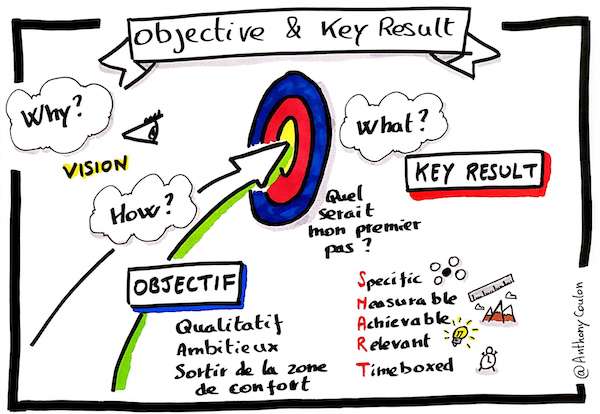 Objective & Key Result
Why?
VISION
How?
What?
KEY RESULT
Quel
serait
mon premier
pas ?
OBJECTIF
Qualitatif
Ambitieux
Sortir de la zone
de confort
Specific
Measurable
Achievable
Relevant
Timeboxed
@Anthony Coulon